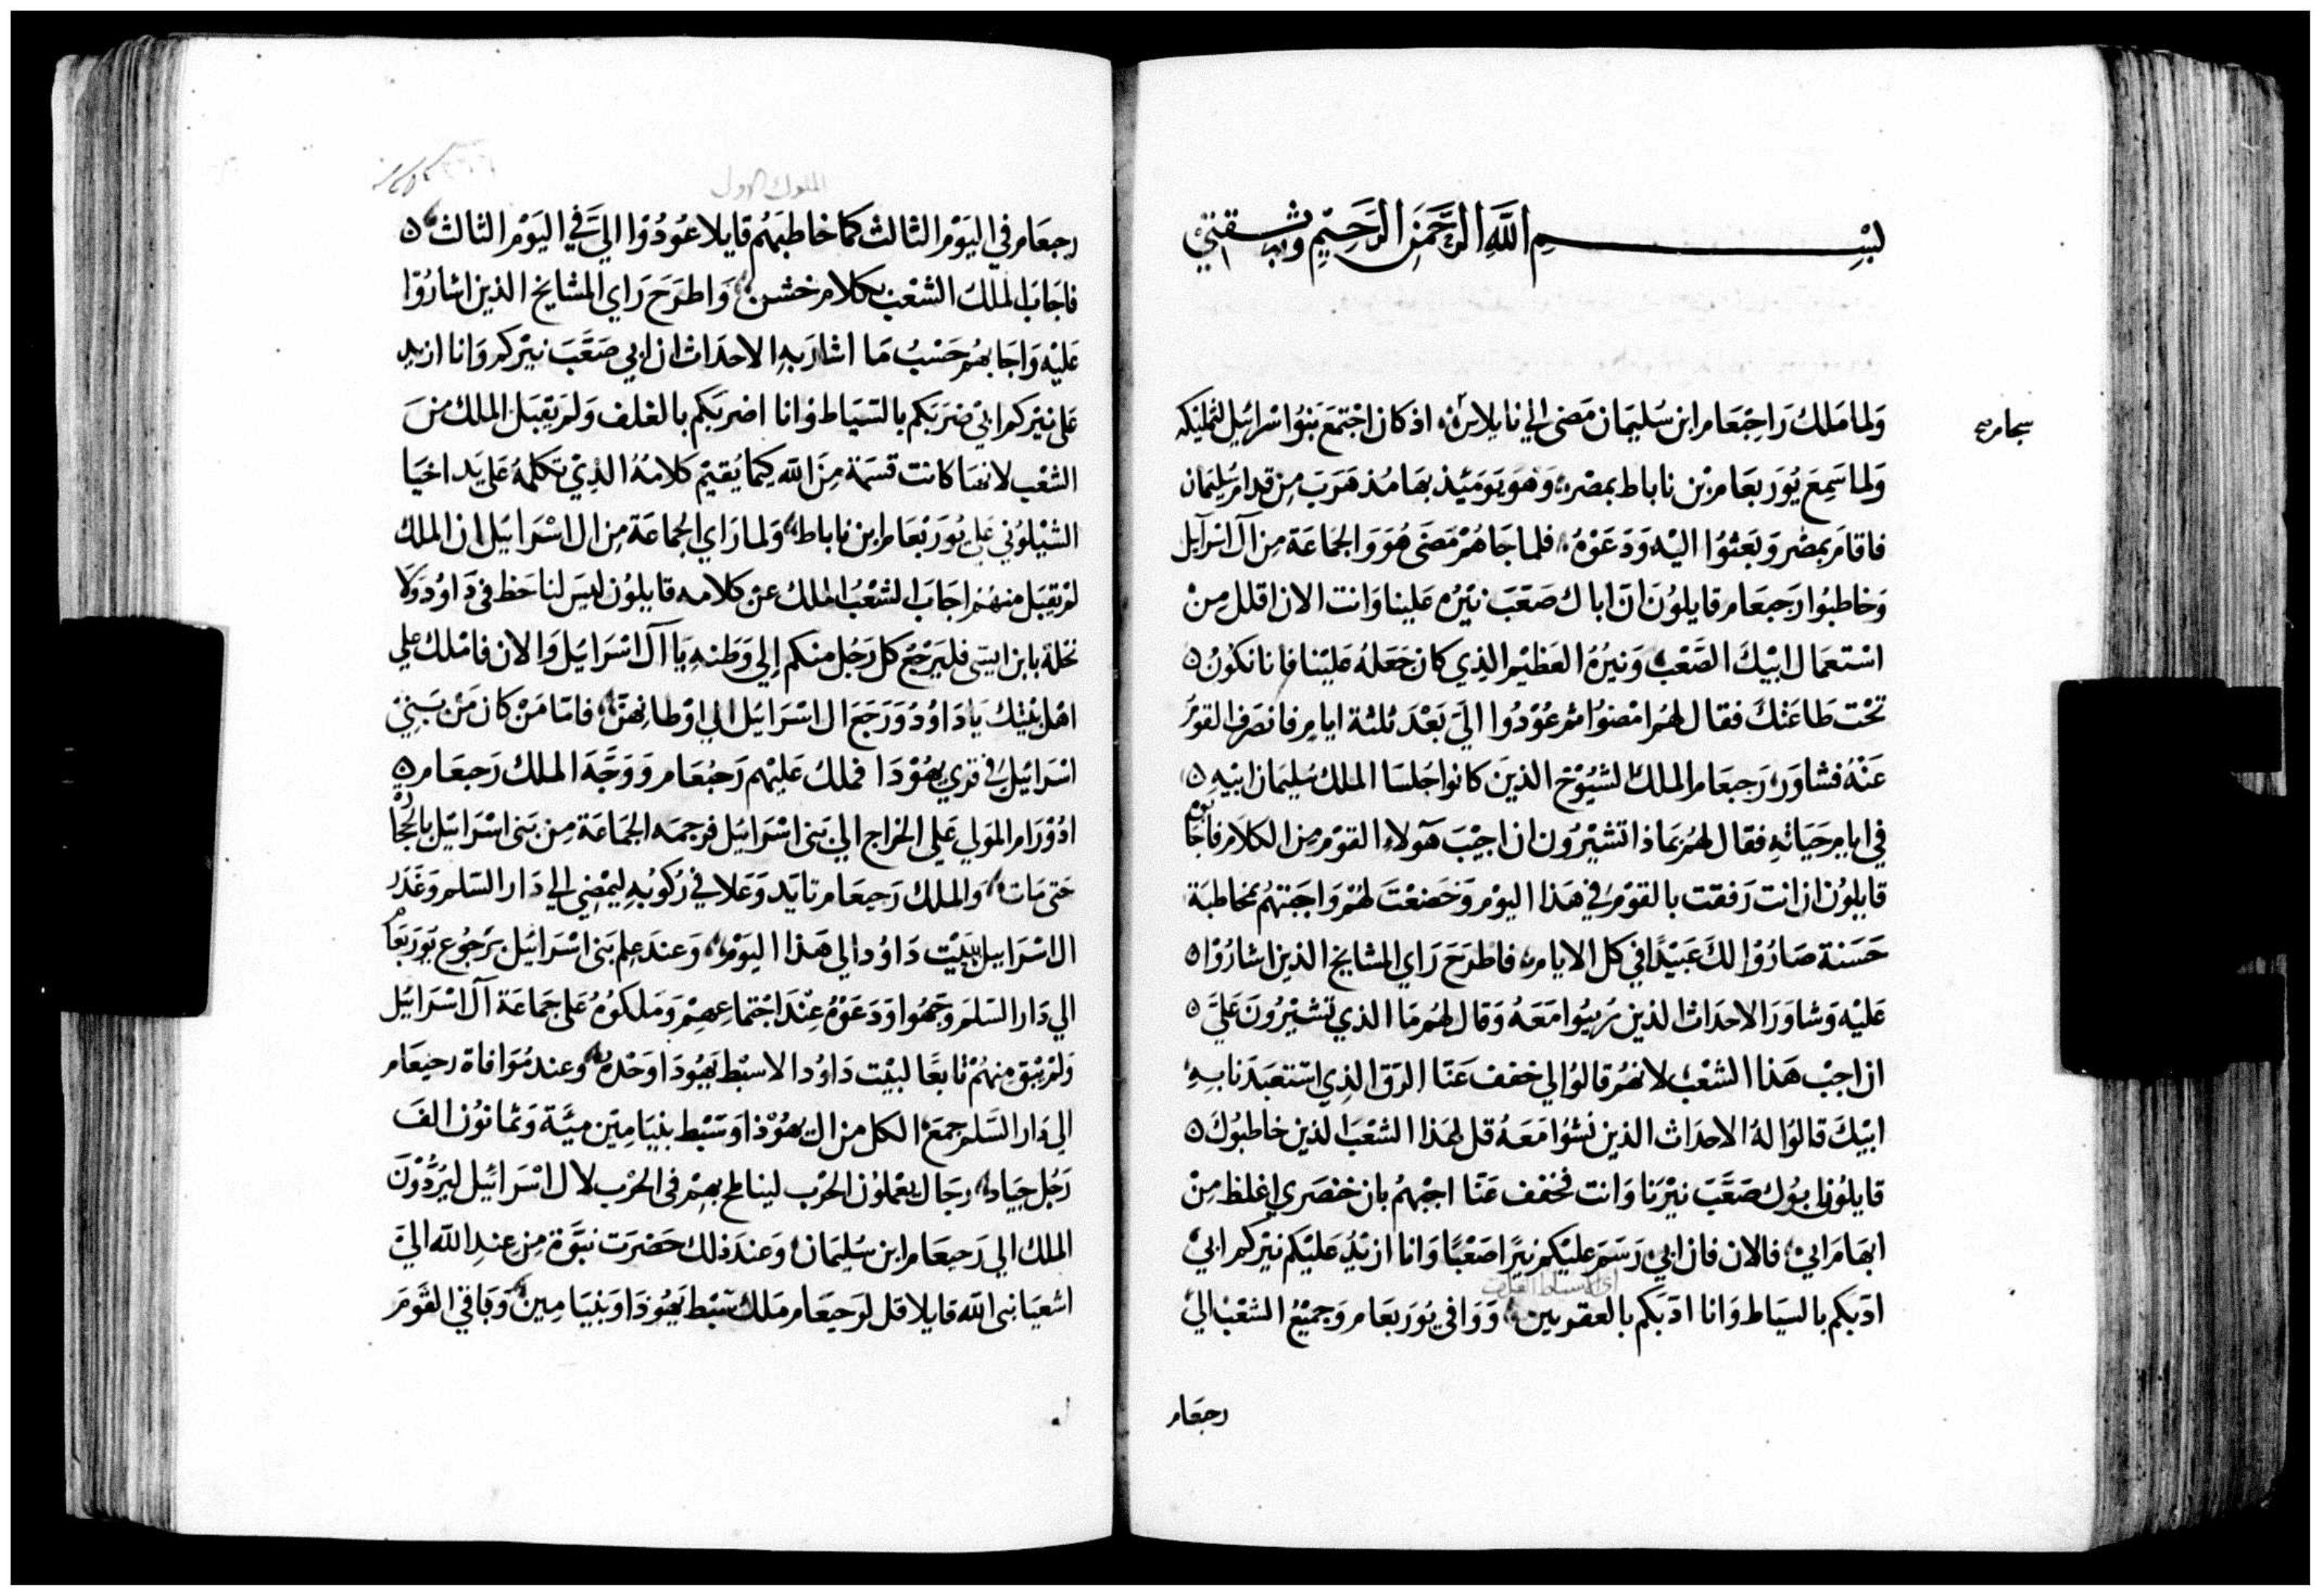 بسم الله الرحمن الرحيم وبه ثقتي
ولما ملك راحبعام ابن سليمان مضى الي نابلس اذ كان اجتمع بنوا اسرائيل لتمليكه
ولما سمع يوربعام بن ناباط بمصر وهو يوميئذ بها مذ هرب من قدام سليمان
فاقام بمصر وبعثوا اليه ودعوه فلما جاهم مضى هو والجماعة من آل اسرآيل
وخاطبوا رحبعام قايلون ان اباك صعب نيره علينا وانت الان اقلل من
استعمال ابيك الصعب ونيره العظيم الذي كان جعله علينا فاننا نكون
تحت طاعتك فقال لهم امضوا ثم عودوا الي بعد ثلثة ايام فانصرف القوم
عنه فشاور رحبعام الملك الشيوخ الذين كانوا جلسا الملك سليمان ابيه
في ايام حياته فقال لهم بماذا تشيرون ان اجيب هولاء القوم من الكلام فاجابوه
قايلون ان انت رفقت بالقوم في هذا اليوم وخضعت لهم واجبتهم بمخاطبة
حسنة صاروا لك عبيدًا في كل الايام فاطرح راي المشايخ الذين اشاروا
عليه وشاور الاحداث الذين ربيوا معه وقال لهم ما الذي تشيرون علي
ان اجب هذا الشعب لانهم قالوا لي خفف عنا الرق الذي استعبدنا به
ابيك قالوا له الاحداث الذين نشوا معه قل لهذا الشعب الذين خاطبوك
قايلون ابوك صعب نيرنا وانت فخفف عنا اجبهم بان خنصري اغلظ من
ابهام ابي فالان فان ابي رسم عليكم نيرًا صعبًا وانا ازيد عليكم نيركم ابي
ادبكم بالسياط وانا ادبكم بالعقربين ووافى يوربعام وجميع الشعب الي
رحبعام
الملوك الاول
رحبعام في اليوم الثالث كما خاطبهم قايلا عودوا الي في اليوم الثالث
فاجاب الملك الشعب بكلام خشن واطرح راي المشايخ الذين اشاروا
عليه واجابهم حسب ما اشار به الاحداث ان ابي صعب نيركم وانا ازيد
على نيركم ابي ضربكم بالسياط وانا اضربكم بالغلف ولم يقبل الملك من
الشعب لانها كانت قسمة من الله كيما يقيم كلامه الذي تكلمه على يد اخيا
الشيلوني علي يوربعام ابن ناباط ولما راي الجماعة من ال اسرائيل ان الملك
لم يقبل منهم اجاب الشعب الملك عن كلامه قايلون ليس لنا حظ في داوود ولا
نحلة بابن ايسى فليرجع كل رجل منكم إلي وطنه يا آل اسرائيل والان فاملك علي
اهل بيتك ياداوود ورجع ال اسرائيل الي اوطانهن فاما من كان من بني
اسرائيل في قري يهودا فملك عليهم رحبعام ووجه الملك رحبعام
ادورام المولي علي الخراج الي بني اسرائيل فرجمه الجماعة من بني اسرائيل بالحجارة
حتى مات والملك رحبعام تايد وعلا في ركوبه ليمضي الي دار السلم وغدر
ال اسرائيل ببيت داود الي هذا اليوم وعند علم بني اسرائيل برجوع يوربعام
الي دار السلم وجهوا ودعوه عند اجتماعهم وملكوه على جماعة آل اسرائيل
ولم يبق منهم تابعًا لبيت داود الا سبط يهودا وحده وعند موافاة رحبعام
الي دار السلم جمع الكل من ال يهوذا وسبط بنيامين مية وثمانون الف
رجل جياد رجال يعملون الحرب بهم في الحرب لال اسرائيل ليردون
الملك الي رحبعام ابن سليمان وعند ذلك حضرت نبوة من عند الله الي
اشعيا نبي الله قايلا قل لرحبعام ملك سبط يهوذا وبنيامين وباقي القوم